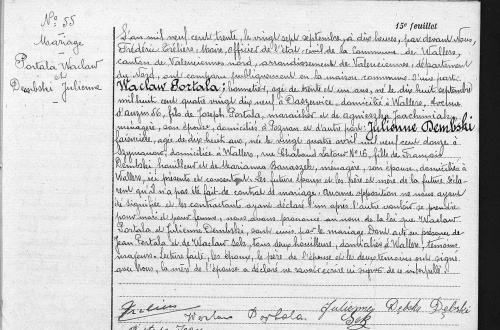 15e feuillet
No 55
Mariage
Portala Waclaw
et
Dembski Julienne
L'an mil neuf cent trente, le vingt sept septembre, à dix heures, par devant Nous,
Frédéric Tréliers, Maire, officier de l'état civil de la Commune de Wallers,
canton de Valenciennes nord, arrondissement de Valenciennes, département
du Nord, ont comparu publiquement en la maison commune: d'une part:
Waclaw Portala, bonnetier, âgé de trente et un ans, né le dix huit septembre
mil huit cent quatre vingt dix neuf à Daszewice, domicilié à Wallers, Avenue
d'Anzin 86, fils de Joseph Portala, maraîcher et de Agnieszka Joachimiak,
ménagère, son épouse, domiciliés à Poznan et d'autre part: Julienne Dembski,
âgée de dix huit ans, née le vingt quatre avril mil neuf cent douze à
domiciliée à Wallers, rue Chabaud Latour No 16, fille de François
Dembski houilleur et de Marianna Banaszek, ménagère, son épouse, domiciliés à
Wallers, ici présents et consentant. Les futurs époux et les père et mère de la future décla-
rent qu'il n'a pas été fait de contrat de mariage. Aucune opposition ne nous ayant
été signifiée et les contractants ayant déclaré l'un après l'autre vouloir se prendre
pour mari et pour femme, nous avons prononcé au nom de la loi que Waclaw
Portala et Julienne Dembski, sont unis par le mariage. Dont acte en présence de
Jean Portala et de Waclaw Sek, tous deux houilleurs, domiciliés à Wallers, témoins
majeurs. Lecture faite, les époux, le père de l'épouse et les témoins ont signé
avec Nous, la mère de l'épouse a déclaré ne savoir écrire ni signer de ce interpellée.
Wacław Portala Julienne Dębska Dębski
Sek